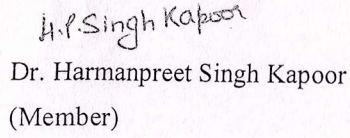 H.P.Singh Kapoor
Dr. Harmanpreet Singh Kapoor
(Member)